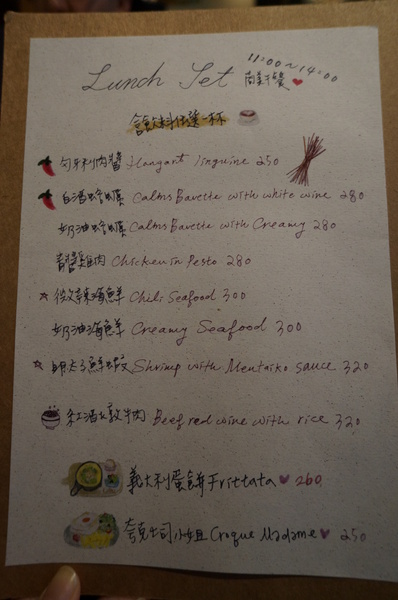 Lunch Set 商業午餐 11:00~14:00
含飲料任選一杯
匈牙利肉醬 Hungart linguine 250
白酒蛤蠣 Calms Bavette with white wine 280
奶油蛤蠣 Calms Bavette with Creamy 280
青醬雞肉 Chicken in Pesto 280
微辣海鮮 Chili Seafood 300
奶油海鮮 Creamy Seafood 300
明太子鮮蝦 Shrimp with Mentaiko sauce 320
紅酒燉牛肉 Beef red wine with rice 320
義大利蛋餅 Frittata 260
夸克吐司小姐 Croque Madame 250